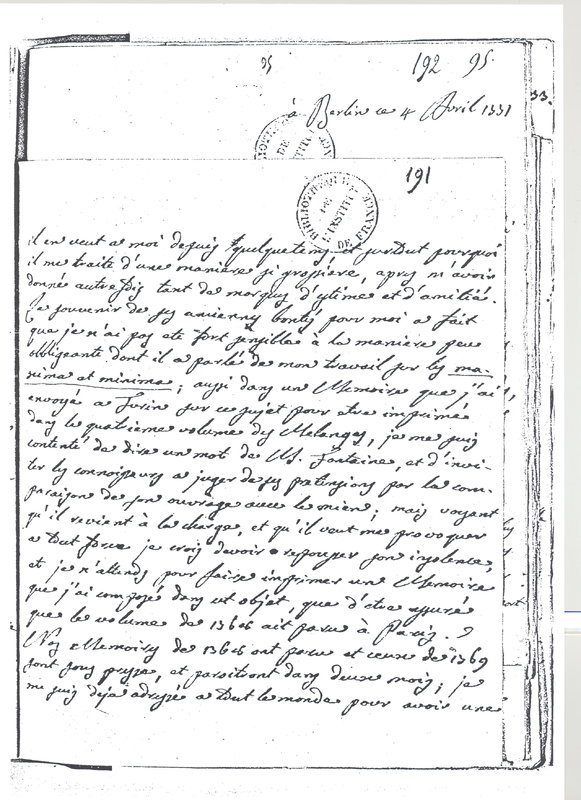 95
192 95.
33.
à Berlin ce 4 Avril 1771
BIBLIOTHEQUE DE L'INSTITUT DE FRANCE
191
il en veut a moi depuis quelque tems et surtout pourquoi
il me traite d'une maniere si grossiere, apres m'avoir
donné autrefois tant de marques d'estime et d'amitié.
Le souvenir de ses anciennes bontés pour moi a fait
que je n'ai pas eté fort sensible à la maniere peu
obligeante dont il a parlé de mon travail sur les ma-
xima et minima; aussi dans un Memoire que j'ai
envoyé a Turin sur ce sujet pour etre imprimé
dans le quatrieme volume des Melanges, je me suis
contenté de dire un mot de M. Fontaine, et d'invi-
ter les connoisseurs a juger de ses pretensions par la com-
paraison de son ouvrage avec le mien; mais voyant
qu'il revient à la charge, et qu'il veut me provoquer
a tout force je crois devoir repousser son insolence,
et je n'attends pour faire imprimer un Memoire
que j'ai composé dans cet objet, que d'etre assuré
que le volume de 1768 ait paru à Paris.
Nos Memoires de 1768 ont paru et ceux de 1769
sont sous presse, et paroitront dans deux mois; je
me suis deja adressé a tout le monde pour avoir une